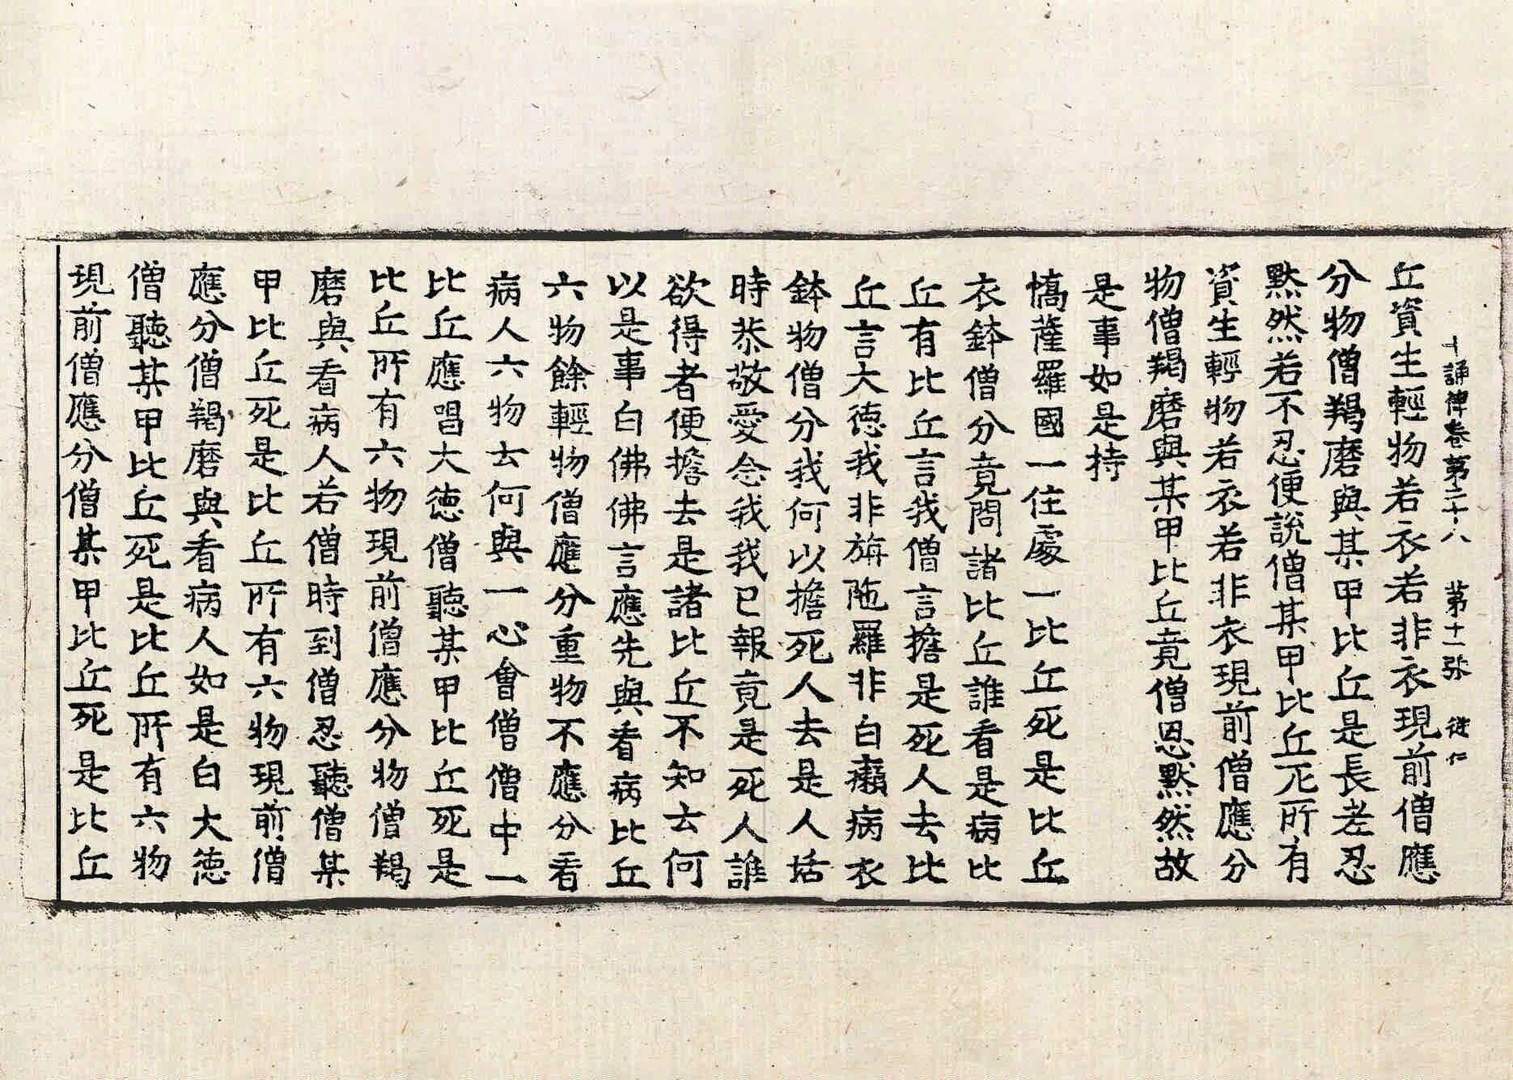 十誦律卷第二十八 第十一張 從仁
丘資生輕物若衣若非衣現前僧應
分物僧羯磨與某甲比丘是長老忍
黙然若不忍便說僧某甲比丘死所有
資生輕物若衣若非衣現前僧應分
物僧羯磨與某甲比丘竟僧忍黙然故
是事如是持
憍薩羅國一住處一比丘死是比丘
衣鉢僧分竟問諸比丘誰看是病比
丘有比丘言我僧言擔是死人去比
丘言大徳我非旃陁羅非白癩病衣
鉢物僧分我何以擔死人去是人活
時恭敬愛念我我已報竟是死人誰
欲得者便擔去是諸比丘不知云何
以是事白佛佛言應先與看病比丘
六物餘輕物僧應分重物不應分看
病人六物云何與一心會僧僧中一
比丘應唱大徳僧聽某甲比丘死是
比丘所有六物現前僧應分物僧羯
磨與看病人若僧時到僧忍聽僧某
甲比丘死是比丘所有六物現前僧
應分僧羯磨與看病人如是白大徳
僧聽某甲比丘死是比丘所有六物
現前僧應分僧某甲比丘死是比丘